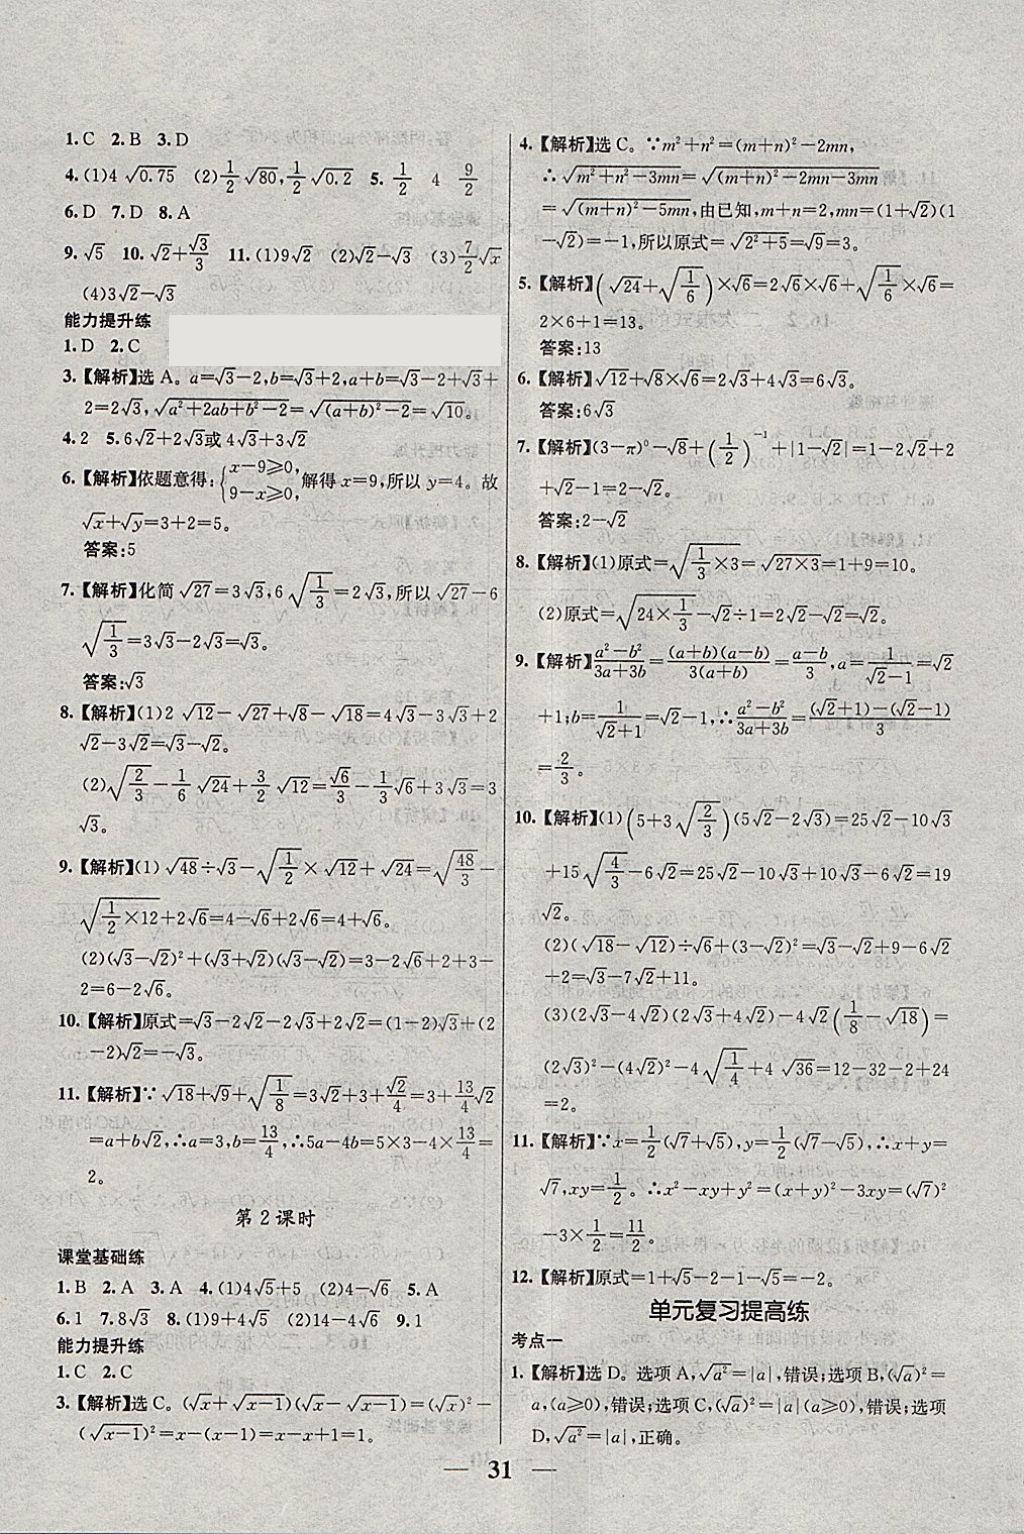 1.C 2.B 3.D
4.(1)4√0.75 (2)1/2√80,1/2√0.2 5.1/2 4 9/2
6.D 7.D 8.A
9.√5 10.√2+√3/3 11.(1)9√2 (2)√2−√3 (3)7/2√x
(4)3√2−√3
能力提升练
1.D 2.C
3.【解析】选A。a=√3−2,b=√3+2,a+b=√3−2+√3+
2=2√3,√(a²+2ab+b²−2)=√((a+b)²−2)=√10。
4.2 5.6√2+2√3或4√3+3√2
6.【解析】依题意得:{x−9≥0, 9−x≥0, 解得x=9,所以y=4。故
√x+√y=3+2=5。
答案:5
7.【解析】化简√27=3√3,6√(1/3)=2√3,所以√27−6
√(1/3)=3√3−2√3=√3。
答案:√3
8.【解析】(1)2√12−√27+√8−√18=4√3−3√3+2
√2−3√2=√3−√2。
(2)√(2/3)−1/6√24+3/2√12=√6/3−1/3√6+3√3=3
√3。
9.【解析】(1)√48÷√3−√(1/2)×√12+√24=√(48/3)−
√(1/2×12)+2√6=4−√6+2√6=4+√6。
(2)(√3−√2)²+(√3+√2)(√3−√2)=3−2√6+2+3−
2=6−2√6。
10.【解析】原式=√3−2√2−2√3+2√2=(1−2)√3+(2
−2)√2=−√3。
11.【解析】∵√18+√9+√(1/8)=3√2+3+√2/4=3+13/4√2
=a+b√2,∴a=3,b=13/4,∴5a−4b=5×3−4×13/4=
2。
第2课时
课堂基础练
1.B 2.A 3.A 4.(1)4√5+5 (2)4−√6 5.A
6.1 7.8√3 8.(1)9+4√5 (2)14−4√6 9.1
能力提升练
1.C 2.C
3.【解析】选C。(√x+√(x−1))(√x−√(x−1))=(√x)²−
(√(x−1))²=x−(x−1)=x−x+1=1。
4.【解析】选C。∵m²+n²=(m+n)²−2mn,
∴√(m²+n²−3mn)=√((m+n)²−2mn−3mn)
=√((m+n)²−5mn),由已知,m+n=2,mn=(1+√2)(1
−√2)=−1,所以原式=√(2²+5)=√9=3。
5.【解析】(√24+√(1/6))×√6=2√6×√6+√(1/6)×√6=
2×6+1=13。
答案:13
6.【解析】√12+√8×√6=2√3+4√3=6√3。
答案:6√3
7.【解析】(3−π)⁰−√8+(1/2)⁻¹+|1−√2|=1−2√2+2
+√2−1=2−√2。
答案:2−√2
8.【解析】(1)原式=√(1/3×3)+√(27×3)=1+9=10。
(2)原式=√(24×1/3)−√2÷1=2√2−√2=√2。
9.【解析】(a²−b²)/(3a+3b)=(a+b)(a−b)/3(a+b)=(a−b)/3,a=1/(√2−1)=√2
+1;b=1/(√2+1)=√2−1,∴(a²−b²)/(3a+3b)=((√2+1)−(√2−1))/3
=2/3。
10.【解析】(1)(5+3√(2/3))(5√2−2√3)=25√2−10√3
+15√(4/3)−6√2=25√2−10√3+10√3−6√2=19
√2。
(2)(√18−√12)÷√6+(3−√2)²=√3−√2+9−6√2
+2=√3−7√2+11。
(3)(2√3−4√2)(2√3+4√2)−4√2(1/8−√18)=
(2√3)²−(4√2)²−4√(1/4)+4√36=12−32−2+24
=2。
11.【解析】∵x=1/2(√7+√5),y=1/2(√7−√5),∴x+y=
√7,xy=1/2。∴x²−xy+y²=(x+y)²−3xy=(√7)²
−3×1/2=11/2。
12.【解析】原式=1+√5−2−1−√5=−2。
单元复习提高练
考点一
1.【解析】选D。选项A,√a²=|a|,错误;选项B,(√a)²=
a,(a≥0),错误;选项C,(√a)²=a(a≥0),错误;选项
D,√a²=|a|,正确。
— 31 —